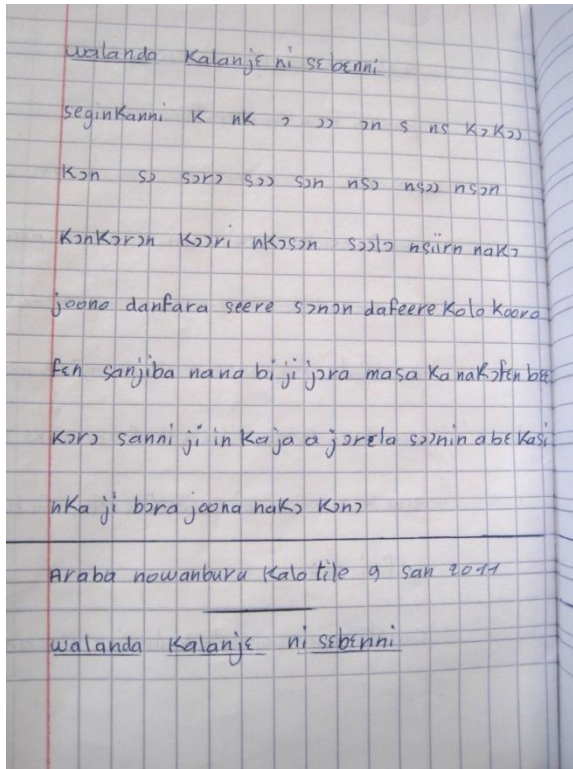 walanda Kalanjɛ ni sɛbɛnni
seginKanni K nK ɔ ɔɔ ɔn s ns KɔKɔɔ
Kɔn sɔ sɔrɔ sɔɔ sɔn nsɔ nsɔɔ nsɔn
KɔnKɔrɔn Kɔɔri nKɔsɔn sɔɔlɔ nsiirn naKɔ
joona danfara seere sɔnɔn dafeere Kolo Kooro
fɛn sanjiba nana bi ji jɔra masa Ka naKɔfɛn bɛɛ
Kɔrɔ sanni ji in Ka ja a jɔrɛla sɔɔnin a bɛ Kasi
nKa ji bɔra joona naKɔ Kɔnɔ
Araba nowanburu Kalo tile 9 san 2011
walanda Kalanjɛ ni sɛbɛnni